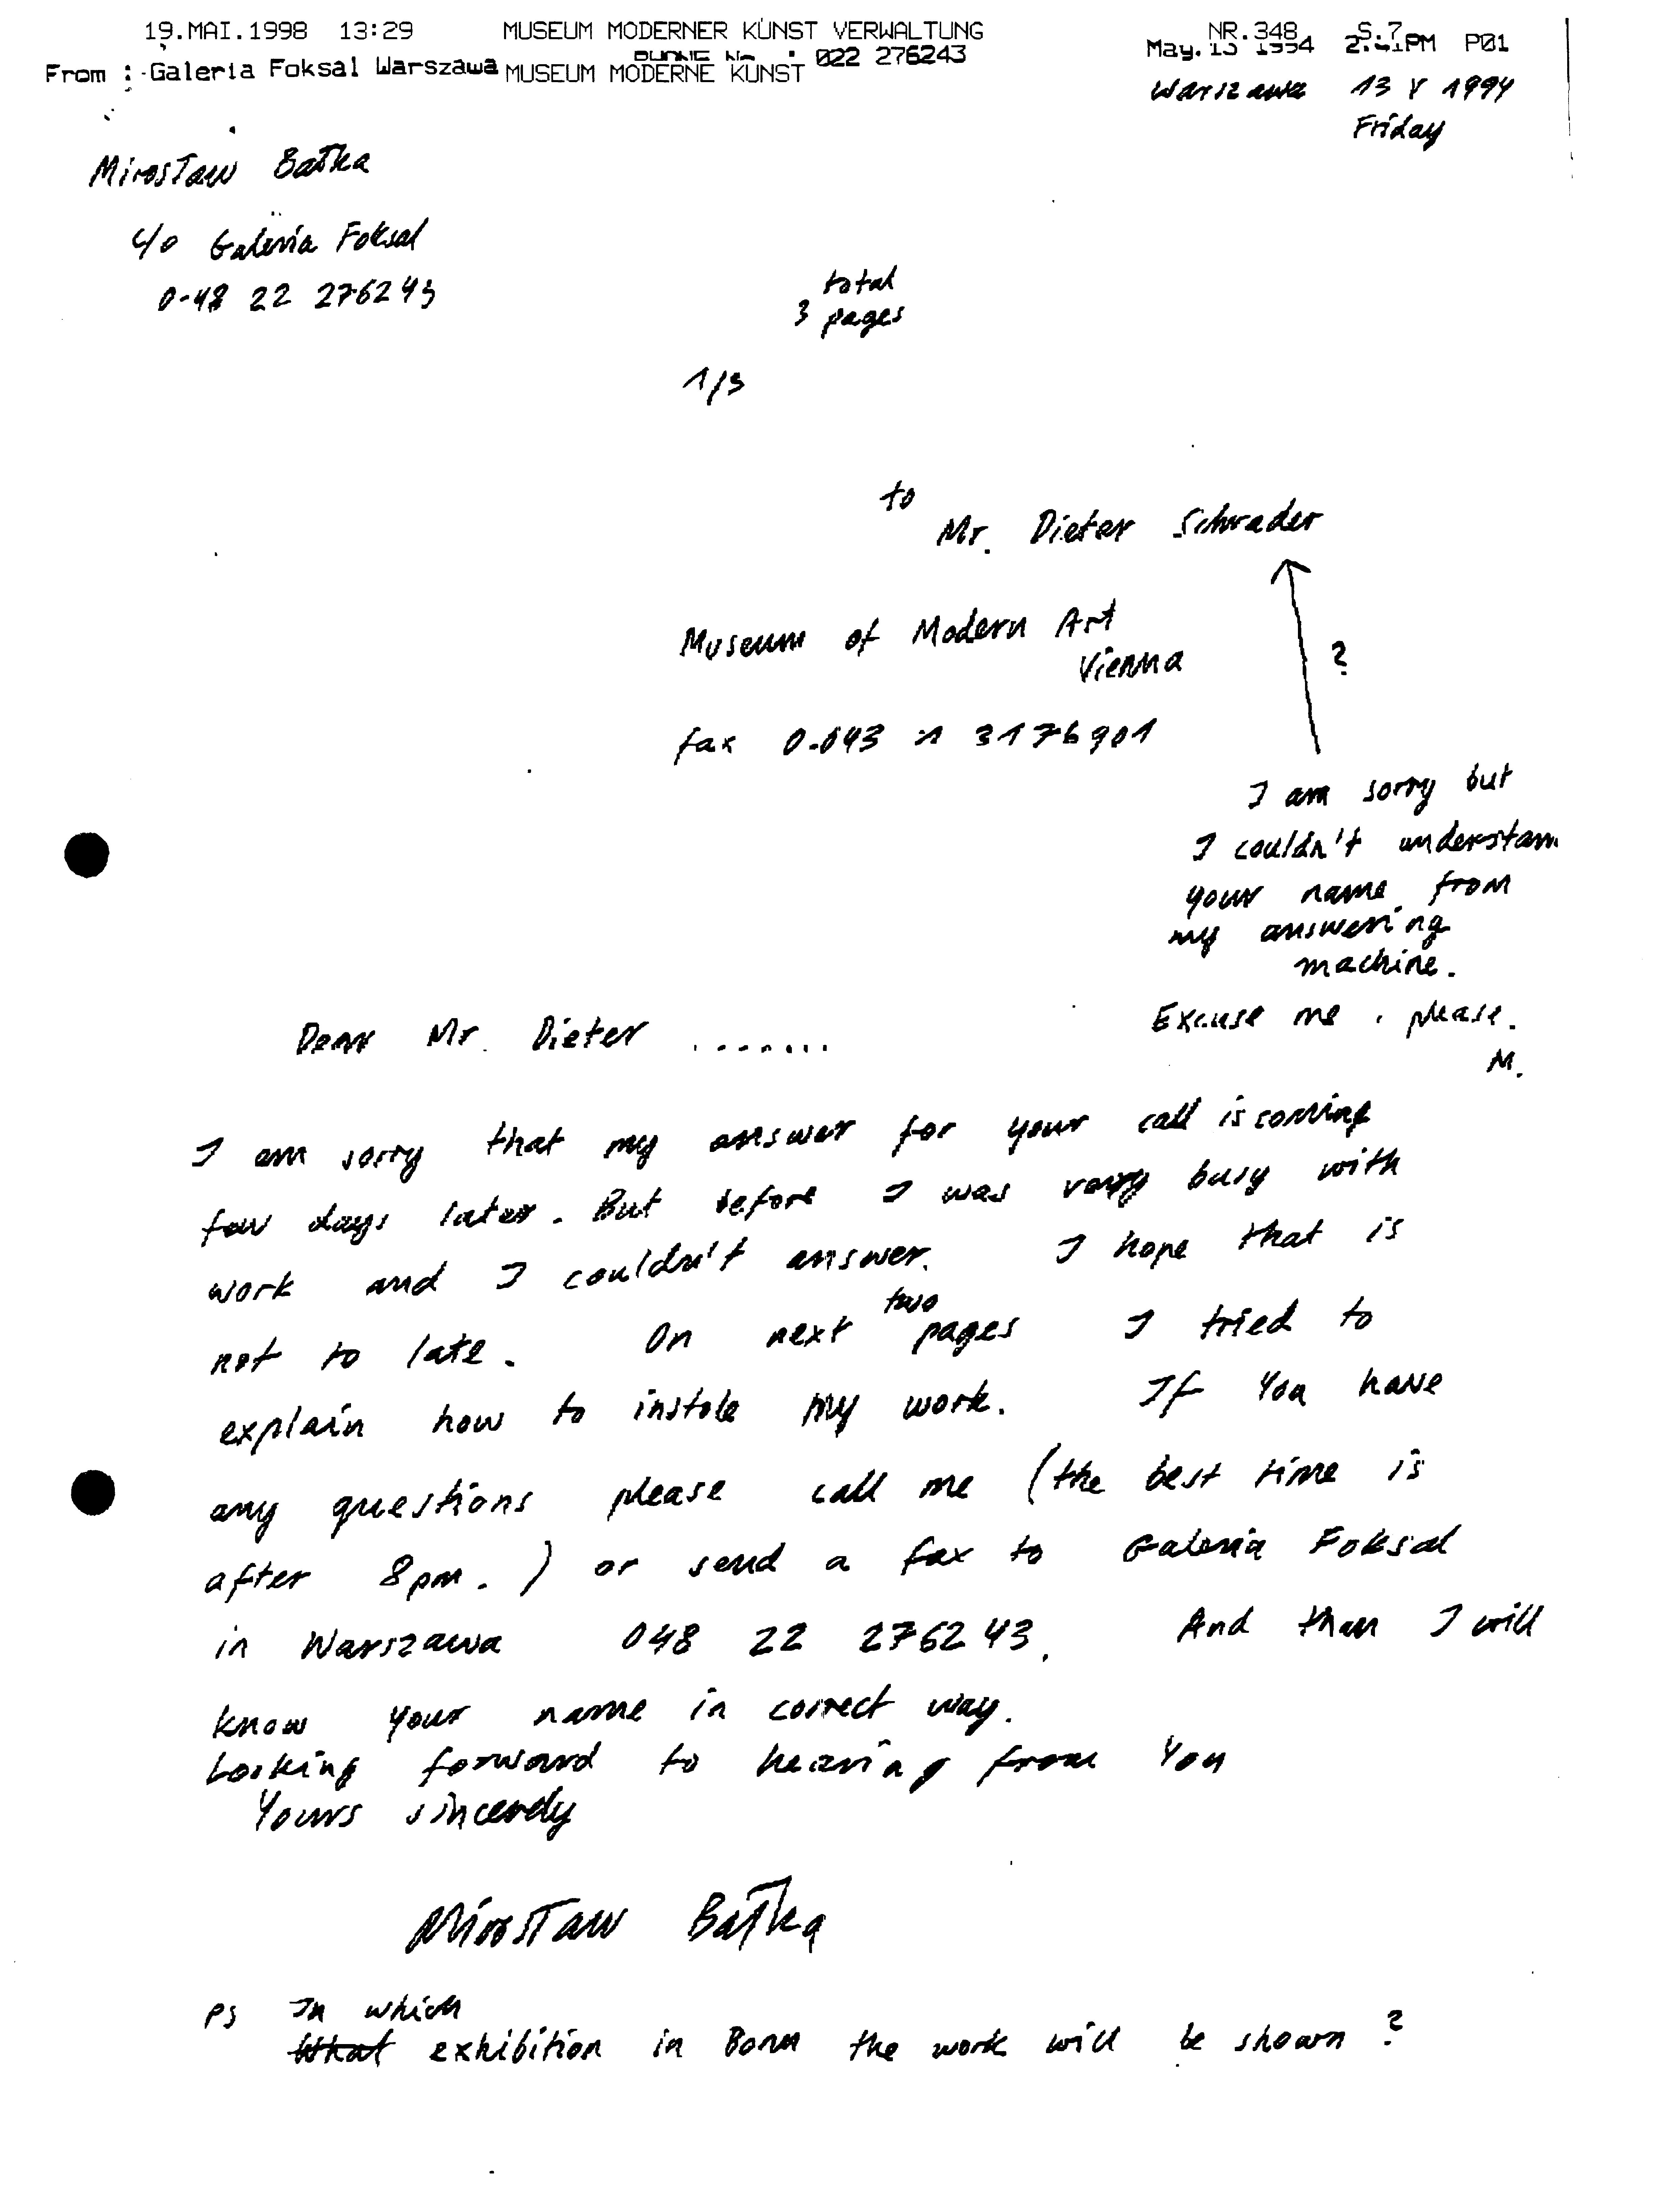 19.MAI.1998 13:29 MUSEUM MODERNER KUNST VERWALTUNG NR.348 S.7
From : Galeria Foksal Warszawa 022 276243 May. 13 1994 PM P01
MUSEUM MODERNE KUNST
Warszawa 13 V 1994
Friday
Mirosław Bałka
c/o Galeria Foksal
0-48 22 276243
total
3 pages
1/3
to
Mr. Dieter Schrader
Museum of Modern Art
Vienna
?
fax 0.043 1 3176901
I am sorry but
I couldn't understan
your name from
my answering
machine.
Excuse me, please.
M.
Dear Mr. Dieter ........
I am sorry that my answer for your call is coming
few days later. But before I was very busy with
work and I couldn't answer. I hope that is
not to late. On next two pages I tried to
explain how to instole my work. If You have
any questions please call me (the best time is
after 8pm.) or send a fax to Galeria Foksal
in Warszawa 048 22 276243. And than I will
know your name in correct way.
Looking forward to hearing from You
Yours sincerely
Mirosław Bałka
PS In which
What exhibition in Bonn the work will be shown ?